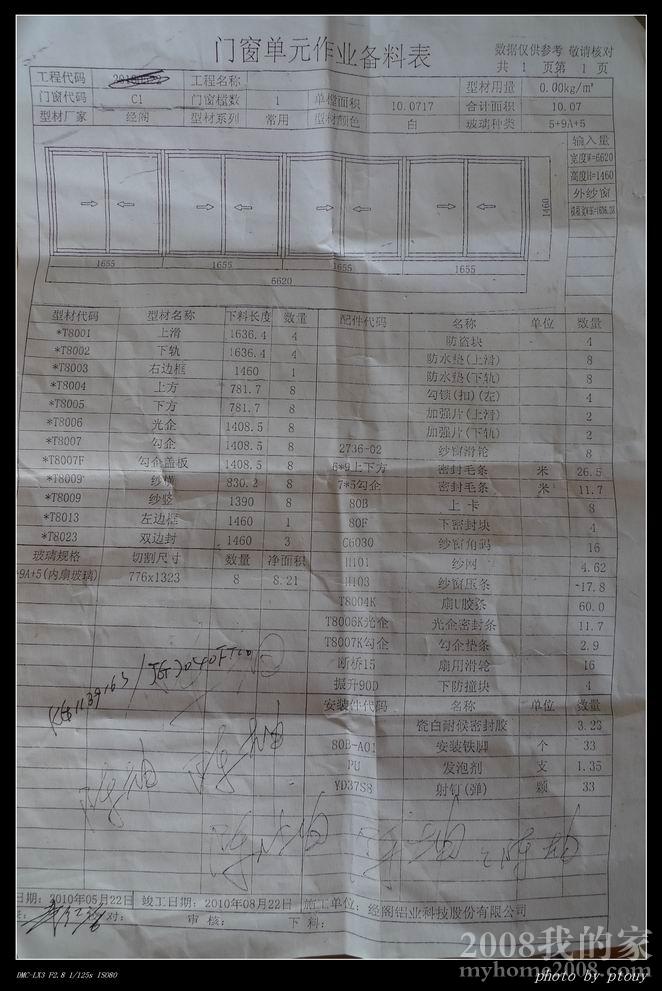 门窗单元作业备料表
数据仅供参考 敬请核对
共 1 页第 1 页
工程代码 工程名称 型材用量 0.00kg/m²
门窗代码 C1 门窗樘数 1 单樘面积 10.0717 合计面积 10.07
型材厂家 经阁 型材系列 常用 型材颜色 白 玻璃种类 5+9A+5
输入量
宽度W=6620
高度H=1460
外纱窗
1460
1655 1655 1655 1655
6620
型材代码 型材名称 下料长度 数量
*T8001 上滑 1636.4 4
*T8002 下轨 1636.4 4
*T8003 右边框 1460 1
*T8004 上方 781.7 8
*T8005 下方 781.7 8
*T8006 光企 1408.5 8
*T8007 勾企 1408.5 8
*T8007F 勾企盖板 1408.5 8
*T8009 纱横 830.2 8
*T8009 纱竖 1390 8
*T8013 左边框 1460 1
*T8023 双边封 1460 3
玻璃规格 切割尺寸 数量 净面积
9A+5(内扇玻璃) 776x1323 8 8.21
配件代码 名称 单位 数量
防盗块 4
防水垫(上滑) 8
防水垫(下轨) 8
勾锁(扣)(左) 4
加强片(上滑) 2
加强片(下轨) 2
2736-02 纱窗滑轮 8
6*9上下方 密封毛条 米 26.5
7*5勾企 密封毛条 米 11.7
80B 上卡 8
80F 下密封块 4
C6030 纱窗角码 16
H101 纱网 4.62
H103 纱窗压条 17.8
T8004K 扇U胶条 60.0
T8006K光企 光企密封条 11.7
T8007K勾企 勾企垫条 2.9
断桥15 扇用滑轮 16
振升90D 下防撞块 4
安装件代码 名称 单位 数量
瓷白耐候密封胶 3.23
80B-A01 安装铁脚 个 33
PU 发泡剂 支 1.35
YD37S8 射钉(弹) 颗 33
日期: 2010年05月22日 竣工日期: 2010年08月22日 施工单位: 经阁铝业科技股份有限公司
对: 审 核: 下 料:
2008我的家
myhome2008.com
DMC-LX3 F2.8 1/125s ISO80
photo by ptouy